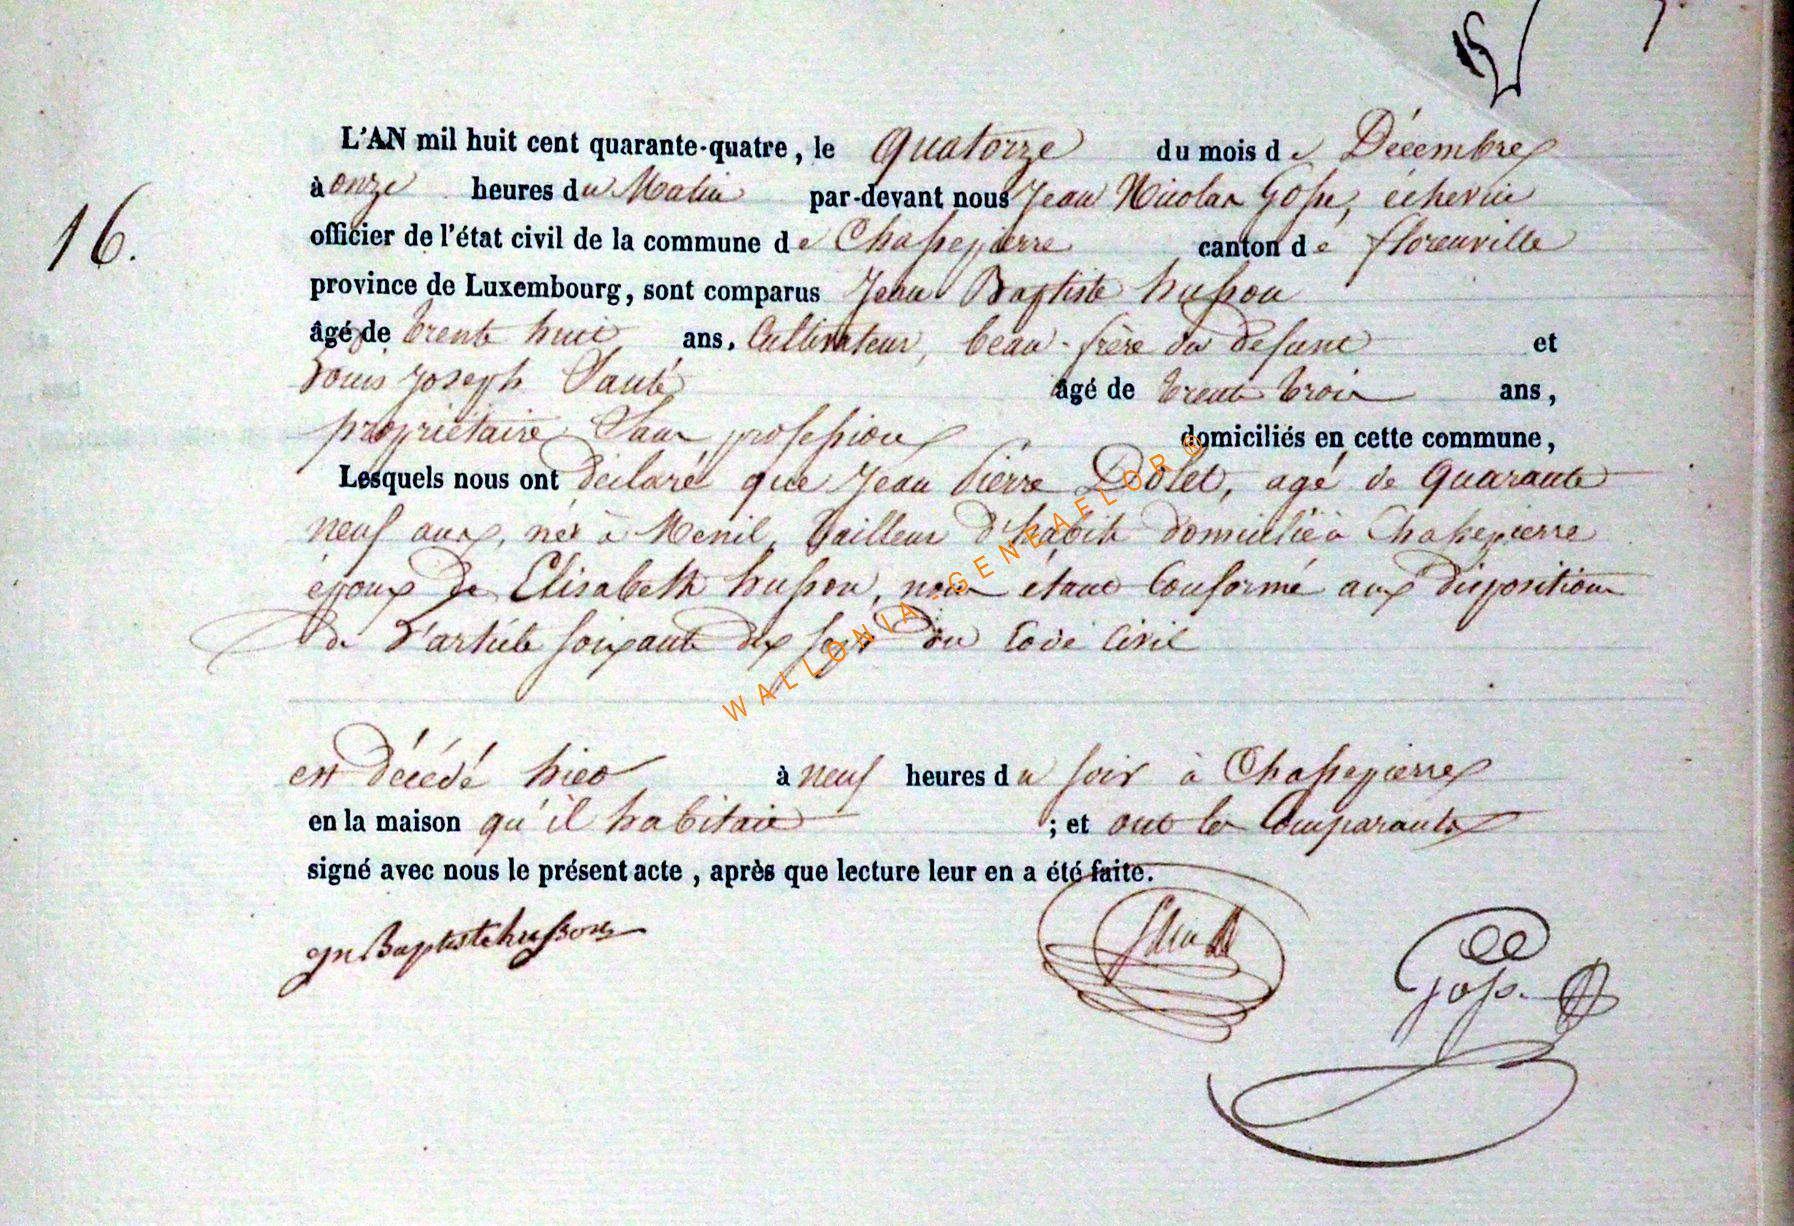 L'AN mil huit cent quarante-quatre, le Quatorze du mois de Décembre
à onze heures du Matin par-devant nous Jean Nicolas Gosse, échevin
officier de l'état civil de la commune de Chassepierre canton de florenville
province de Luxembourg, sont comparus Jean Baptiste husson
âgé de trente huit ans, Cultivateur, beau-frère du defunt et
Louis Joseph âgé de trente trois ans,
propriétaire Sans profession domiciliés en cette commune,
Lesquels nous ont déclaré que Jean Pierre Dolet, agé de Quarante
neuf ans, né à Menil, tailleur d'habits domicilié à Chassepierre
époux de Elisabeth husson, nous étant Conformé aux dispositions
de l'article soixante dix sept du Code Civil
WALLONIA-GENEAELOR®
est décédé hier à neuf heures du soir à Chassepierre
en la maison qu'il habitait ; et ont les Comparants
signé avec nous le présent acte, après que lecture leur en a été faite.
jn Baptiste husson Gosse
16.